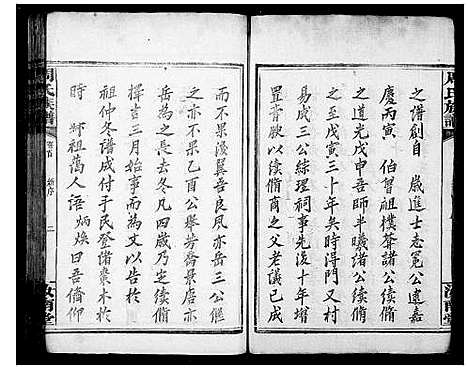 周氏族譜
之譜創自 歲進士卷冕公遠嘉
慶丙寅 伯曾祖樸齋諸公續脩
之道光戊戌 師半曦諸公續脩
之至戊寅三十年矣時得門又村
易成三公綜理祠事先後十年增
置膏腴以續脩商之父老議已成
而不果淺翼吾良夙亦岳三公繼
之亦不果乙酉公舉芳谿應亦
岳為之長去冬凡四歲乃定續脩
擇吉三月始事而為文以告於
祖仲冬譜成付手民登諸棗木於
時 師祖蕅人語炳煥曰吾脩仰
周氏族譜
卷首
新序
二
汝南堂